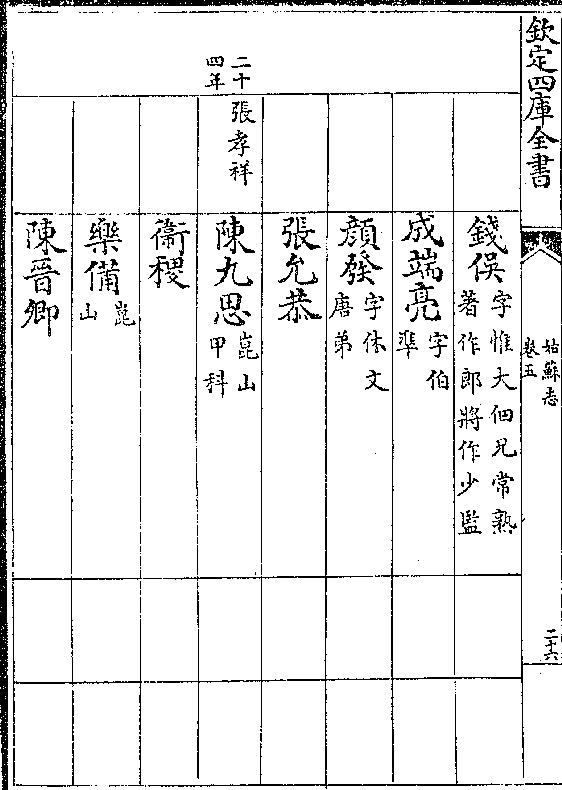 欽定四庫全書
姑蘇志
卷五
二十六
錢俁字惟大佃兄常熟
著作郎將作少監
成端亮字伯
準
顔發字休文
唐弟
張允恭
二十
四年
張孝祥
陳九思崑山
甲科
衛稷
樂備崑
山
陳晉卿